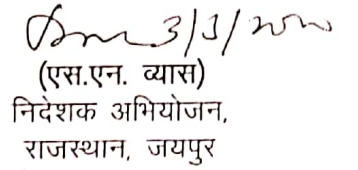 3/1/2020
(एस.एन. व्यास)
निदेशक अभियोजन,
राजस्थान, जयपुर